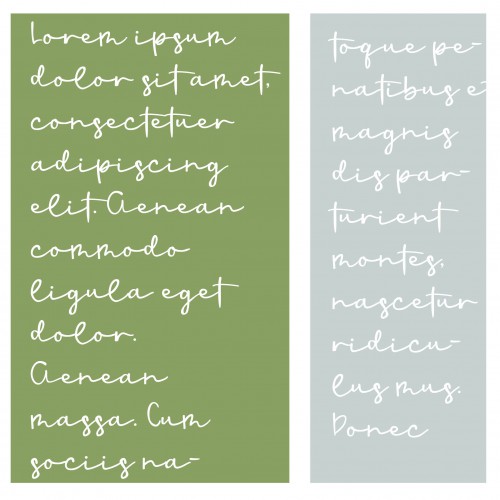 Lorem ipsum
dolor sit amet,
consectetuer
adipiscing
elit. Aenean
commodo
ligula eget
dolor.
Aenean
massa. Cum
sociis na-
toque pe-
natibus et
magnis
dis par-
turient
montes,
nascetur
ridicu-
lus mus.
Donec